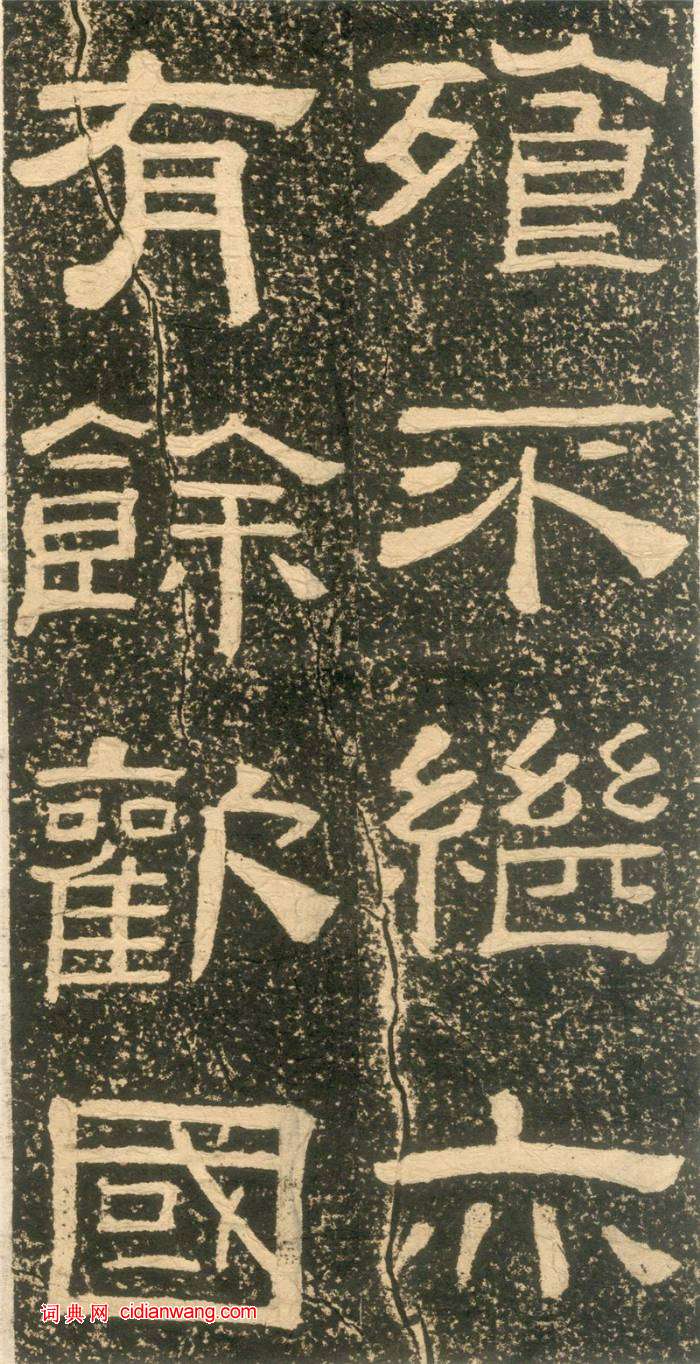 飱不繼亦
有餘歡國
词典网 cidianwang.com